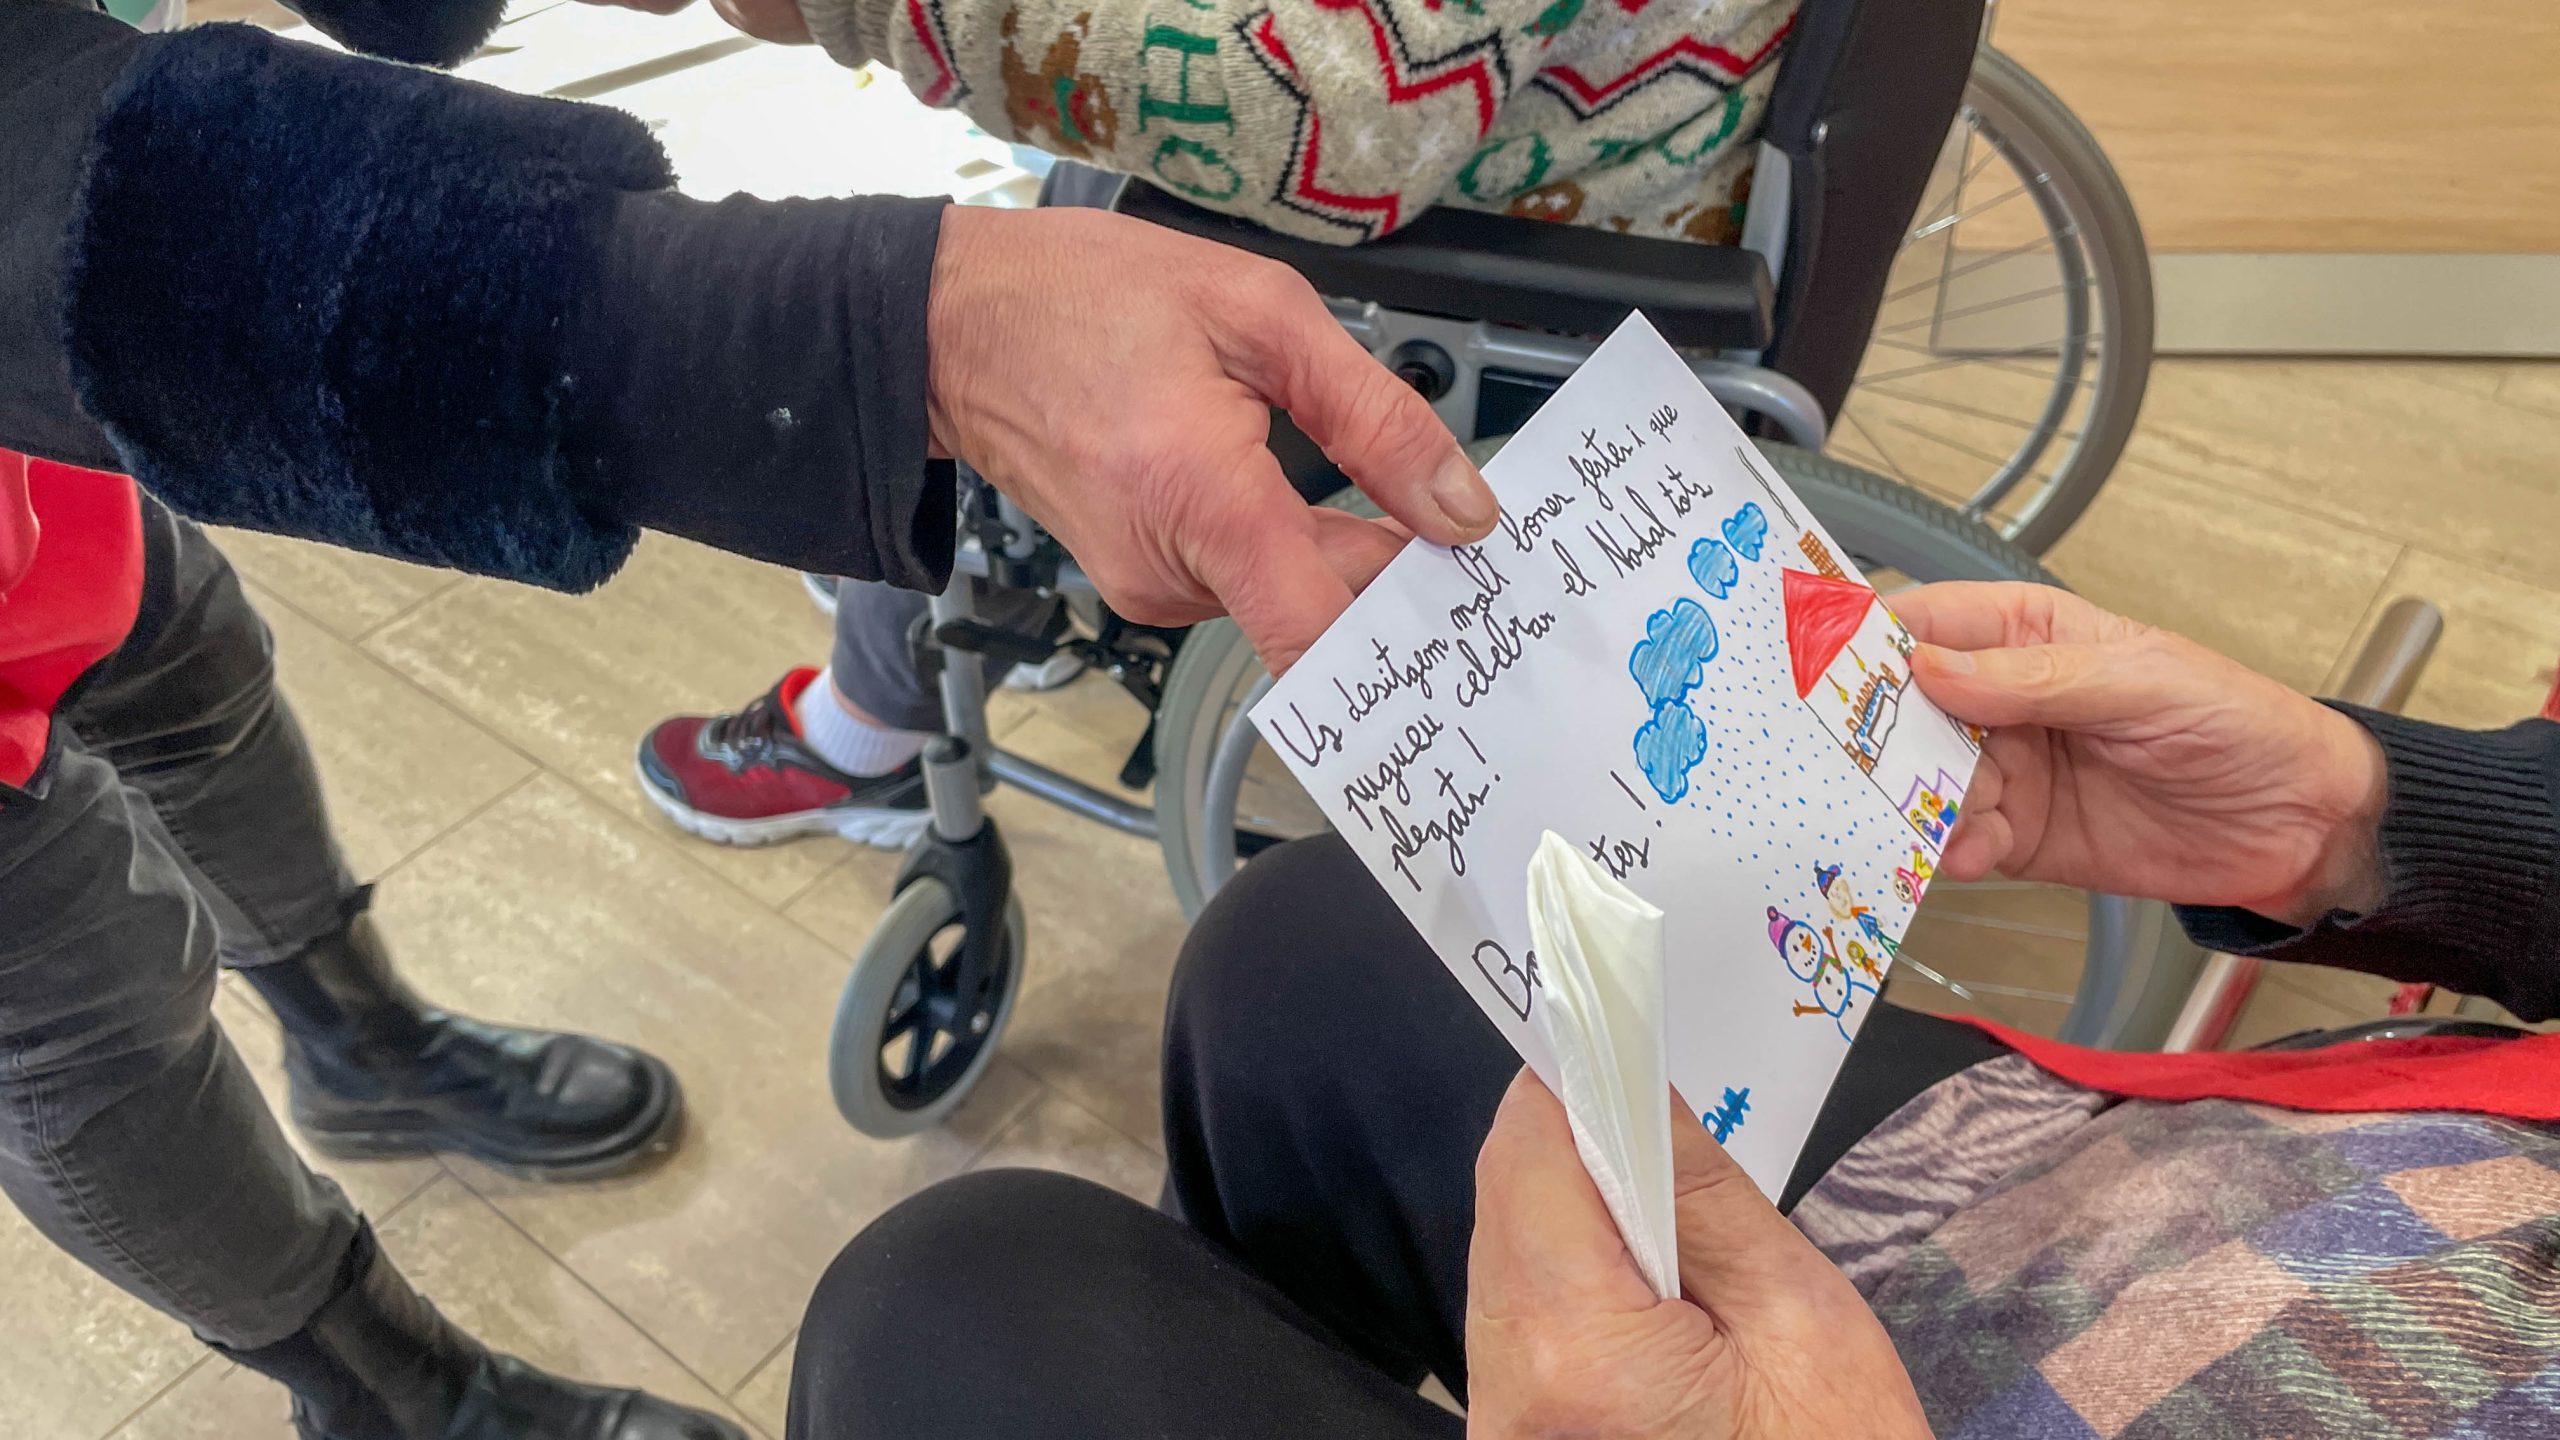 Us desitgem molt bones festes i que
pugueu celebrar el Nadal tots
plegats!
OHOHO